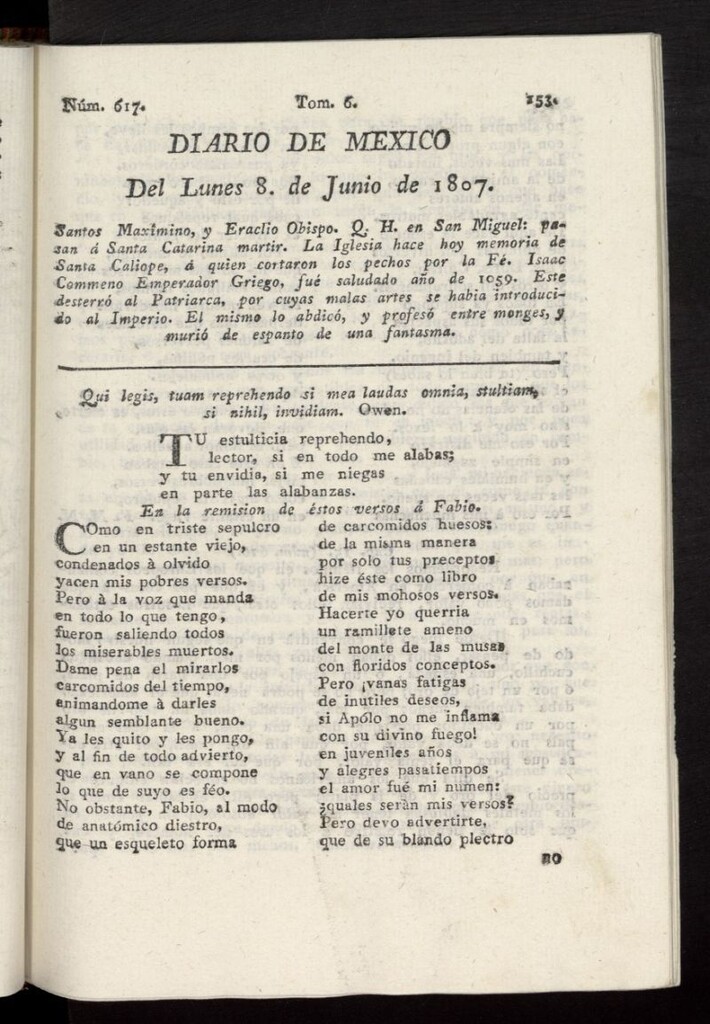 Núm. 617. Tom. 6. 153.
DIARIO DE MEXICO
Del Lunes 8. de Junio de 1807.
Santos Maximino, y Eraclio Obispo. Q. H. en San Miguel: pa-
san á Santa Catarina martir. La Iglesia hace hoy memoria de
Santa Caliope, á quien cortaron los pechos por la Fé. Isaac
Commeno Emperador Griego, fué saludado año de 1059. Este
desterró al Patriarca, por cuyas malas artes se habia introduci-
do al Imperio. El mismo lo abdicó, y profesó entre monges, y
murió de espanto de una fantasma.
Qui legis, tuam reprehendo si mea laudas omnia, stultiam,
si nihil, invidiam. Owen.
TU estulticia reprehendo,
lector, si en todo me alabas;
y tu envidia, si me niegas
en parte las alabanzas.
En la remision de éstos versos á Fabio.
COmo en triste sepulcro
en un estante viejo,
condenados à olvido
yacen mis pobres versos.
Pero à la voz que manda
en todo lo que tengo,
fueron saliendo todos
los miserables muertos.
Dame pena el mirarlos
carcomidos del tiempo,
animandome à darles
algun semblante bueno.
Ya les quito y les pongo,
y al fin de todo advierto,
que en vano se compone
lo que de suyo es féo.
No obstante, Fabio, al modo
de anatómico diestro,
que un esqueleto forma
de carcomidos huesos:
de la misma manera
por solo tus preceptos
hize éste como libro
de mis mohosos versos.
Hacerte yo querria
un ramillete ameno
del monte de las musas
con floridos conceptos.
Pero ¡vanas fatigas
de inutiles deseos,
si Apólo no me inflama
con su divino fuego!
en juveniles años
y alegres pasatiempos
el amor fué mi numen:
¿quales seràn mis versos?
Pero devo advertirte,
que de su blando plectro
no